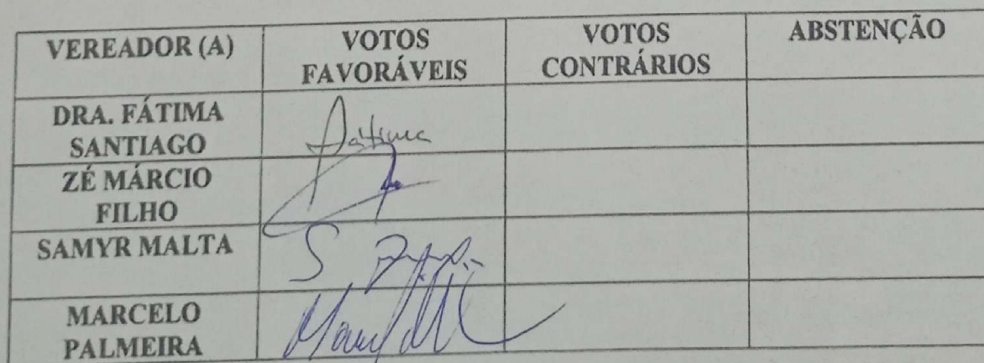 VEREADOR (A) VOTOS FAVORÁVEIS VOTOS CONTRÁRIOS ABSTENÇÃO
DRA. FÁTIMA SANTIAGO Fátima
ZÉ MÁRCIO FILHO
SAMYR MALTA
MARCELO PALMEIRA